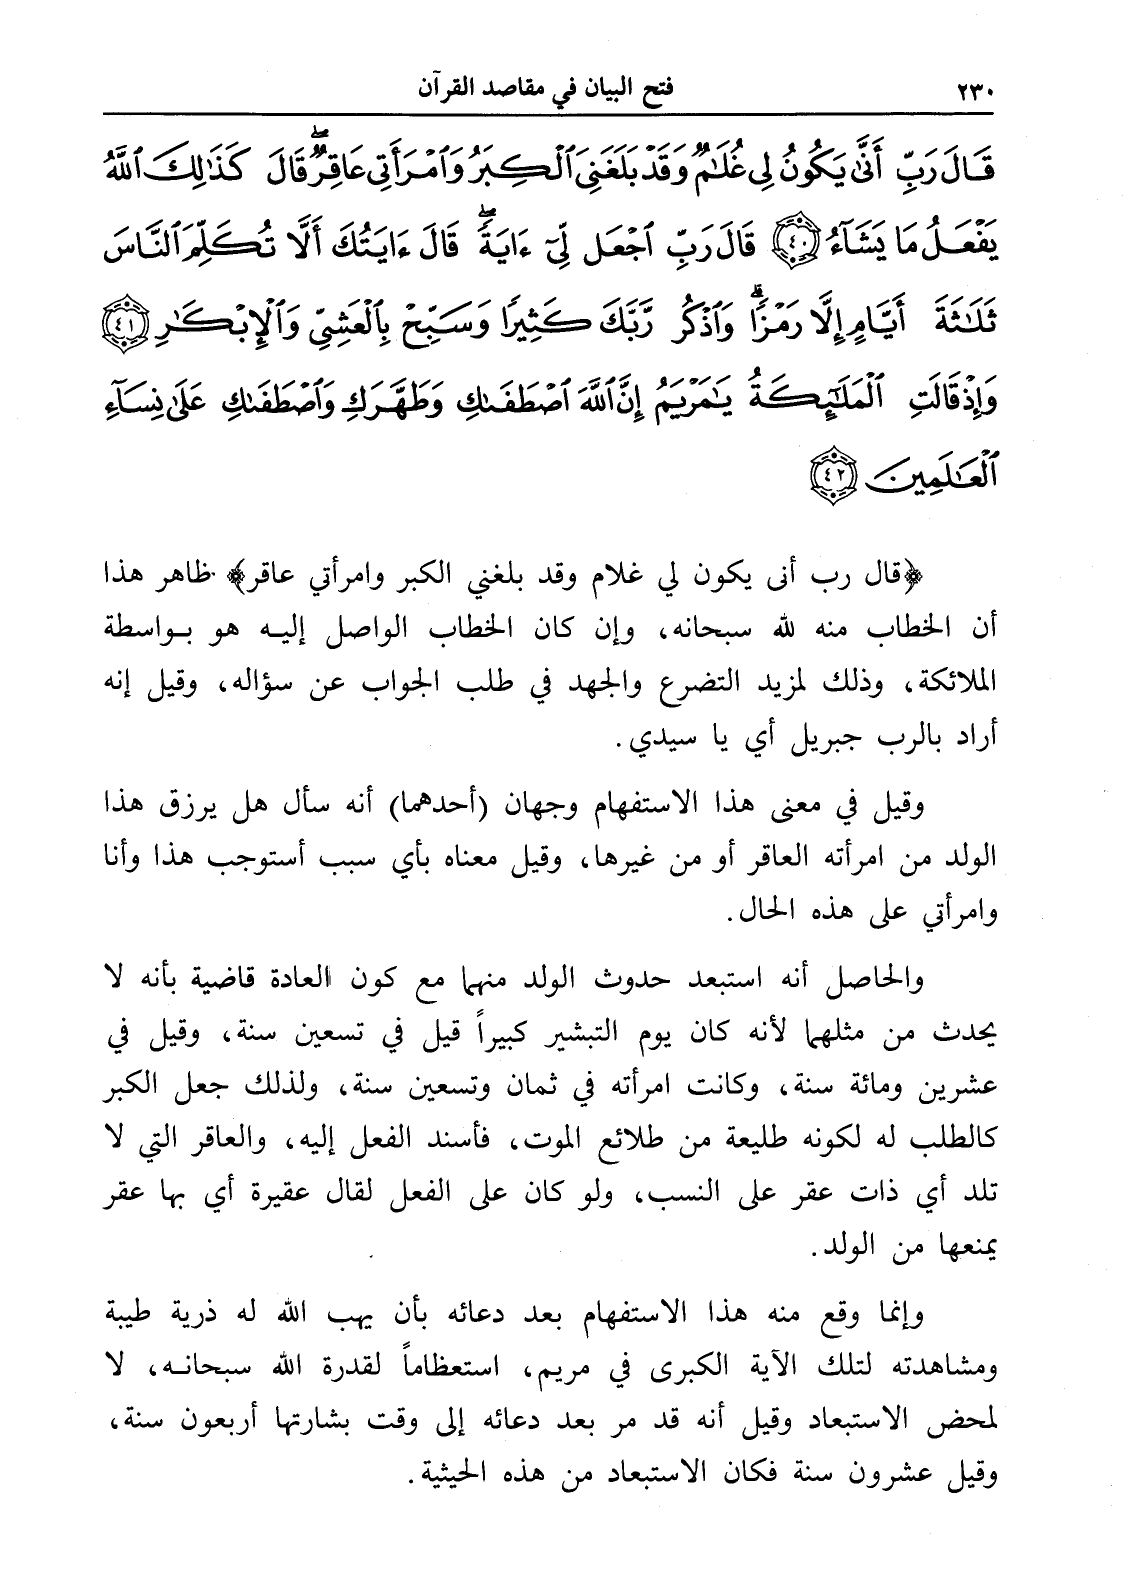 ٢٣٠ فتح البيان في مقاصد القرآن
قَالَ رَبِّ أَنَّى يَكُونُ لِي غُلَٰمٌ وَقَدْ بَلَغَنِيَ ٱلْكِبَرُ وَٱمْرَأَتِي عَاقِرٌۖ قَالَ كَذَٰلِكَ ٱللَّهُ
يَفْعَلُ مَا يَشَآءُ ٤٠ قَالَ رَبِّ ٱجْعَل لِّيٓ ءَايَةًۖ قَالَ ءَايَتُكَ أَلَّا تُكَلِّمَ ٱلنَّاسَ
ثَلَٰثَةَ أَيَّامٍ إِلَّا رَمْزًاۗ وَٱذْكُر رَّبَّكَ كَثِيرًا وَسَبِّحْ بِٱلْعَشِيِّ وَٱلْإِبْكَٰرِ ٤١
وَإِذْ قَالَتِ ٱلْمَلَٰٓئِكَةُ يَٰمَرْيَمُ إِنَّ ٱللَّهَ ٱصْطَفَىٰكِ وَطَهَّرَكِ وَٱصْطَفَىٰكِ عَلَىٰ نِسَآءِ
ٱلْعَٰلَمِينَ ٤٢
﴿قال رب أنى يكون لي غلام وقد بلغني الكبر وامرأتي عاقر﴾ ظاهر هذا
أن الخطاب منه لله سبحانه، وإن كان الخطاب الواصل إليه هو بواسطة
الملائكة، وذلك لمزيد التضرع والجهد في طلب الجواب عن سؤاله، وقيل إنه
أراد بالرب جبريل أي يا سيدي.
وقيل في معنى هذا الاستفهام وجهان (أحدهما) أنه سأل هل يرزق هذا
الولد من امرأته العاقر أو من غيرها، وقيل معناه بأي سبب أستوجب هذا وأنا
وامرأتي على هذه الحال.
والحاصل أنه استبعد حدوث الولد منهما مع كون العادة قاضية بأنه لا
يحدث من مثلهما لأنه كان يوم التبشير كبيراً قيل في تسعين سنة، وقيل في
عشرين ومائة سنة، وكانت امرأته في ثمان وتسعين سنة، ولذلك جعل الكبر
كالطلب له لكونه طليعة من طلائع الموت، فأسند الفعل إليه، والعاقر التي لا
تلد أي ذات عقر على النسب، ولو كان على الفعل لقال عقيرة أي بها عقر
يمنعها من الولد.
وإنما وقع منه هذا الاستفهام بعد دعائه بأن يهب الله له ذرية طيبة
ومشاهدته لتلك الآية الكبرى في مريم، استعظاماً لقدرة الله سبحانه، لا
لمحض الاستبعاد وقيل أنه قد مر بعد دعائه إلى وقت بشارتها أربعون سنة،
وقيل عشرون سنة فكان الاستبعاد من هذه الحيثية.